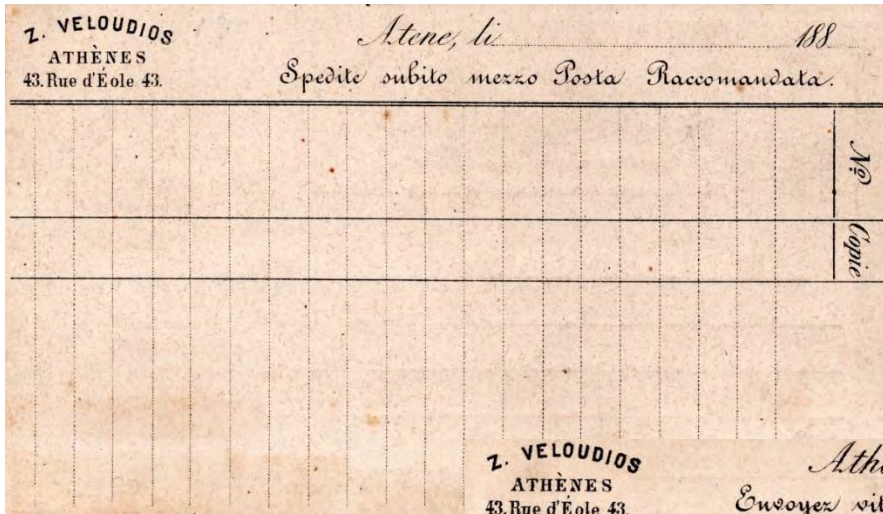 Z. VELOUDIOS
ATHÈNES
43. Rue d'Éole 43.
Atene, li 188
Spedite subito mezzo Posta Raccomandata.
No
Copie
Z. VELOUDIOS
ATHÈNES
43. Rue d'Éole 43.
Ath
Envoyez vit